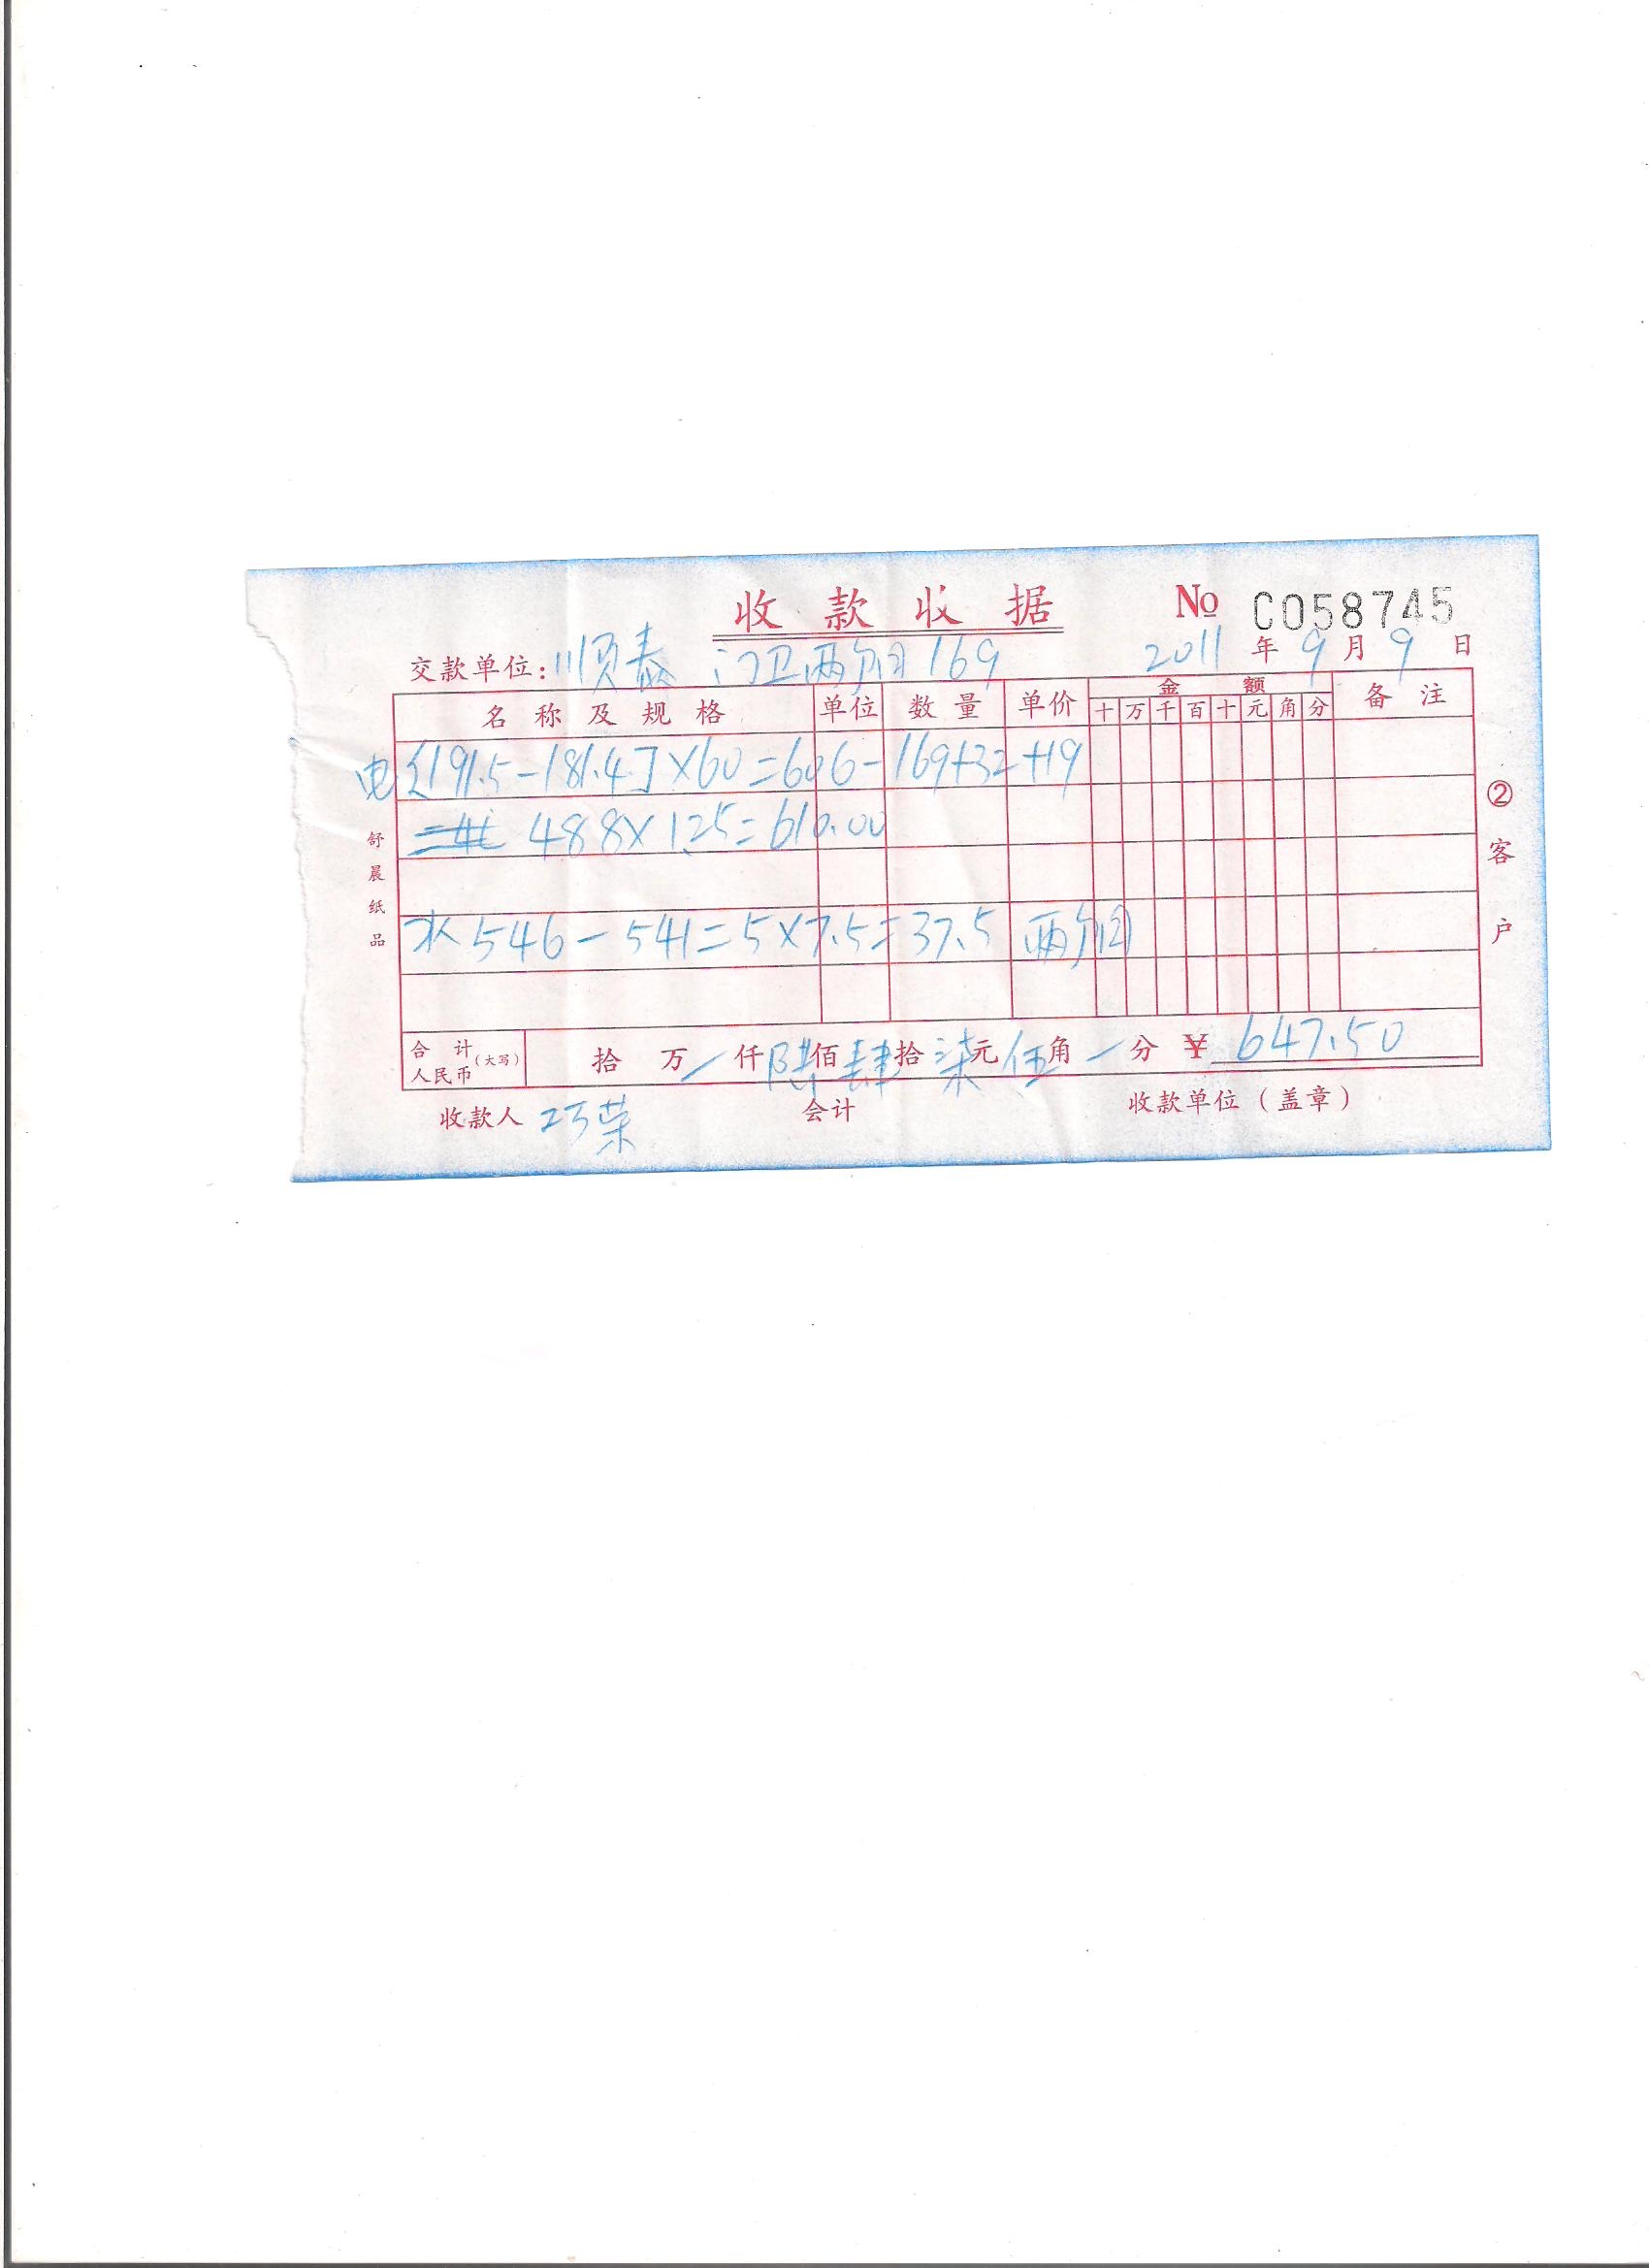 收款收据 No C058745
交款单位:顺泰 门卫两个月169 2011年9月9日
名称及规格 单位 数量 单价 金额 备注
十万千百十元角分
电{191.5-181.4]×60=606-169+32+19
488×1.25=610.00
水 546-541=5×7.5=37.5 两个月
合计人民币(大写) 拾万/仟陆佰肆拾柒元伍角/分 ¥ 647.50
收款人 巧荣 会计 收款单位(盖章)
舒晨纸品
②客户